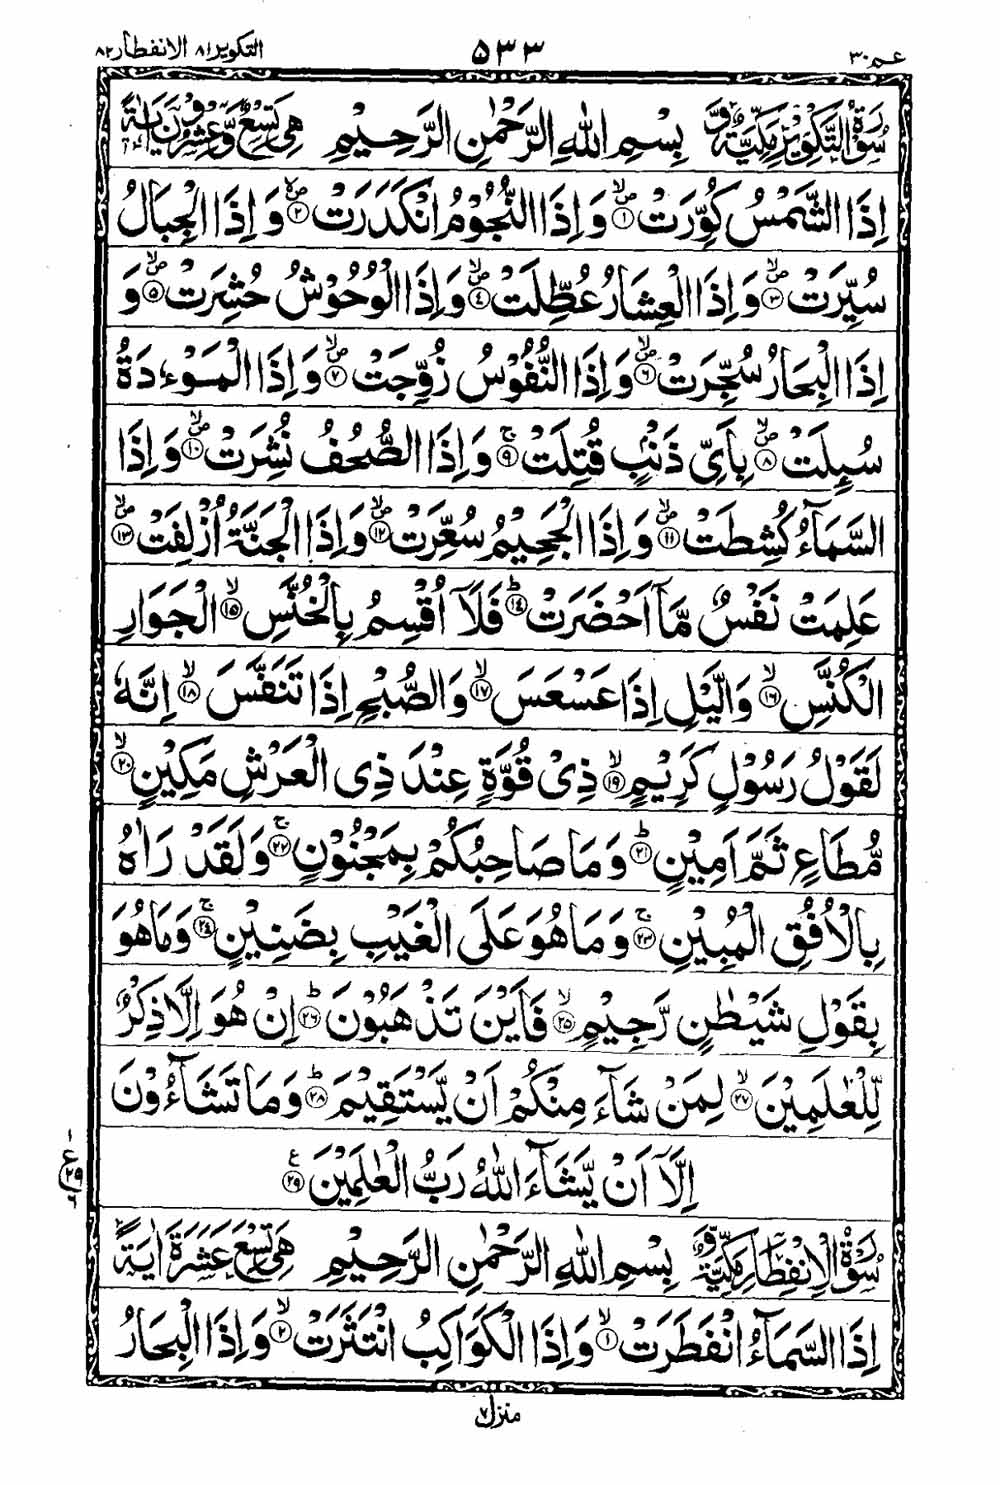 عم٣٠ ۵٣٣ التكوير٨١ الانفطار٨٢
سُوْرَةُ التَّكْوِيْرِ مَكِّيَّةٌ وَّ بِسْمِ اللهِ الرَّحْمٰنِ الرَّحِيْمِ هِيَ تِسْعٌ وَّعِشْرُوْنَ اٰيَةً
اِذَا الشَّمْسُ كُوِّرَتْ ۪ۙ‏﴿۱﴾ وَ اِذَا النُّجُوْمُ انْكَدَرَتْ ۪ۙ‏﴿۲﴾ وَ اِذَا الْجِبَالُ
سُيِّرَتْ ۪ۙ‏﴿۳﴾ وَ اِذَا الْعِشَارُ عُطِّلَتْ ۪ۙ‏﴿٤﴾ وَ اِذَا الْوُحُوْشُ حُشِرَتْ ۪ۙ‏﴿۵﴾ وَ
اِذَا الْبِحَارُ سُجِّرَتْ ۪ۙ‏﴿۶﴾ وَ اِذَا النُّفُوْسُ زُوِّجَتْ ۪ۙ‏﴿۷﴾ وَ اِذَا الْمَوْءٗدَةُ
سُىِٕلَتْ ۪ۙ‏﴿۸﴾ بِاَيِّ ذَنْۢبٍ قُتِلَتْ ۚ‏﴿۹﴾ وَ اِذَا الصُّحُفُ نُشِرَتْ ۪ۙ‏﴿۱۰﴾ وَ اِذَا
السَّمَآءُ كُشِطَتْ ۪ۙ‏﴿۱۱﴾ وَ اِذَا الْجَحِيْمُ سُعِّرَتْ ۪ۙ‏﴿۱۲﴾ وَ اِذَا الْجَنَّةُ اُزْلِفَتْ ۪ۙ‏﴿۱۳﴾
عَلِمَتْ نَفْسٌ مَّاۤ اَحْضَرَتْ ؕ‏﴿۱٤﴾ فَلَاۤ اُقْسِمُ بِالْخُنَّسِ ۙ‏﴿۱۵﴾ الْجَوَارِ
الْكُنَّسِ ۙ‏﴿۱۶﴾ وَ الَّيْلِ اِذَا عَسْعَسَ ۙ‏﴿۱۷﴾ وَ الصُّبْحِ اِذَا تَنَفَّسَ ۙ‏﴿۱۸﴾ اِنَّهٗ
لَقَوْلُ رَسُوْلٍ كَرِيْمٍ ۙ‏﴿۱۹﴾ ذِيْ قُوَّةٍ عِنْدَ ذِي الْعَرْشِ مَكِيْنٍ ۙ‏﴿۲۰﴾
مُّطَاعٍ ثَمَّ اَمِيْنٍ ؕ‏﴿۲۱﴾ وَ مَا صَاحِبُكُمْ بِمَجْنُوْنٍ ۚ‏﴿۲۲﴾ وَ لَقَدْ رَاٰهُ
بِالْاُفُقِ الْمُبِيْنِ ۚ‏﴿۲۳﴾ وَ مَا هُوَ عَلَى الْغَيْبِ بِضَنِيْنٍ ۚ‏﴿۲٤﴾ وَ مَا هُوَ
بِقَوْلِ شَيْطٰنٍ رَّجِيْمٍ ۙ‏﴿۲۵﴾ فَاَيْنَ تَذْهَبُوْنَ ؕ‏﴿۲۶﴾ اِنْ هُوَ اِلَّا ذِكْرٌ
لِّلْعٰلَمِيْنَ ۙ‏﴿۲۷﴾ لِمَنْ شَآءَ مِنْكُمْ اَنْ يَّسْتَقِيْمَ ؕ‏﴿۲۸﴾ وَ مَا تَشَآءُوْنَ
اِلَّاۤ اَنْ يَّشَآءَ اللهُ رَبُّ الْعٰلَمِيْنَ ﴿۲۹﴾ ع
١
ع
٢٩
٦
سُوْرَةُ الْاِنْفِطَارِ مَكِّيَّةٌ وَّ بِسْمِ اللهِ الرَّحْمٰنِ الرَّحِيْمِ هِيَ تِسْعَ عَشَرَةَ اٰيَةً
اِذَا السَّمَآءُ انْفَطَرَتْ ۙ‏﴿۱﴾ وَ اِذَا الْكَوَاكِبُ انْتَثَرَتْ ۙ‏﴿۲﴾ وَ اِذَا الْبِحَارُ
منزل٧